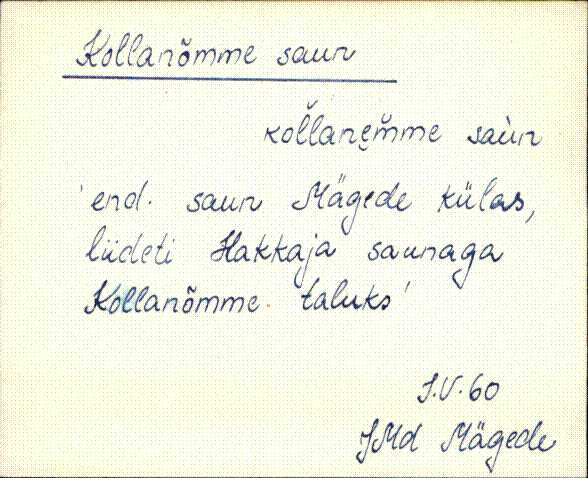 Kollanõmme saun
kol̆lane̮m̆me saùn
'end. saun Mägede külas,
liideti Hakkaja saunaga
Kollanõmme taluks'
J.V. 60
JMd Mägede